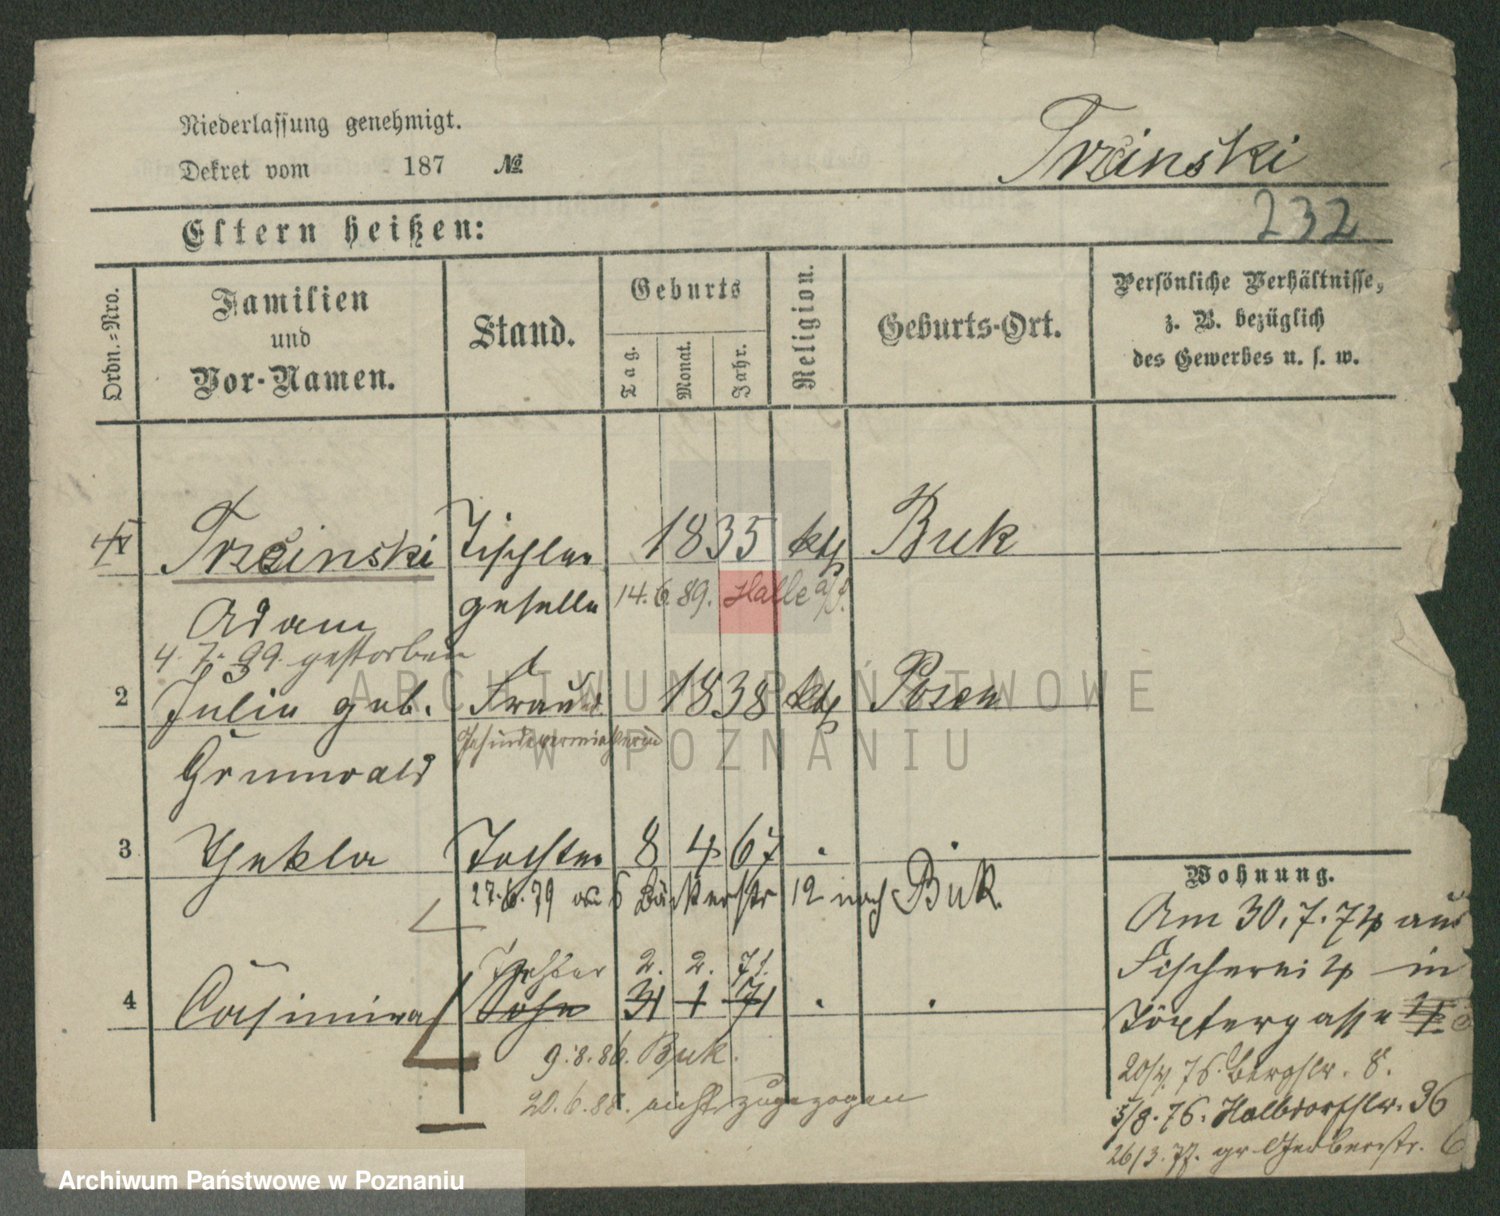 Niederlassung genehmigt.
Dekret vom 187 №
Trzinski
232
Eltern heißen:
Ordn.=Nro.
Familien
und
Vor-Namen.
Stand.
Geburts
Tag.
Monat.
Jahr.
Religion.
Geburts-Ort.
Persönliche Verhältnisse,
z. B. bezüglich
des Gewerbes u. s. w.
Trzcinski Tischler 1835 kth Buk
geselle 14.6.89. Halle a/S.
Adam
4.7.99. gestorben
2 Julia geb. Frau 1838 kth Posen
Gesindevermietherin
Grunwald
3 Thekla Tochter 8 4 67
27.6.79 6 Bäckerstr 12 nach Buk
Tochter 2. 2. 71.
4 Casimira Sohn 31 1 71
9.8.86. Buk.
20.6.88. nicht zugezogen
Wohnung.
Am 30.7.74 aus
Fischerei 4 in
Töpfergasse
20/4. 75. Bergstr. 8.
5/8.76. Halbdorfstr. 36
26/3.77. gr Gerberstr. 6
ARCHIWUM PAŃSTWOWE
W POZNANIU
Archiwum Państwowe w Poznaniu